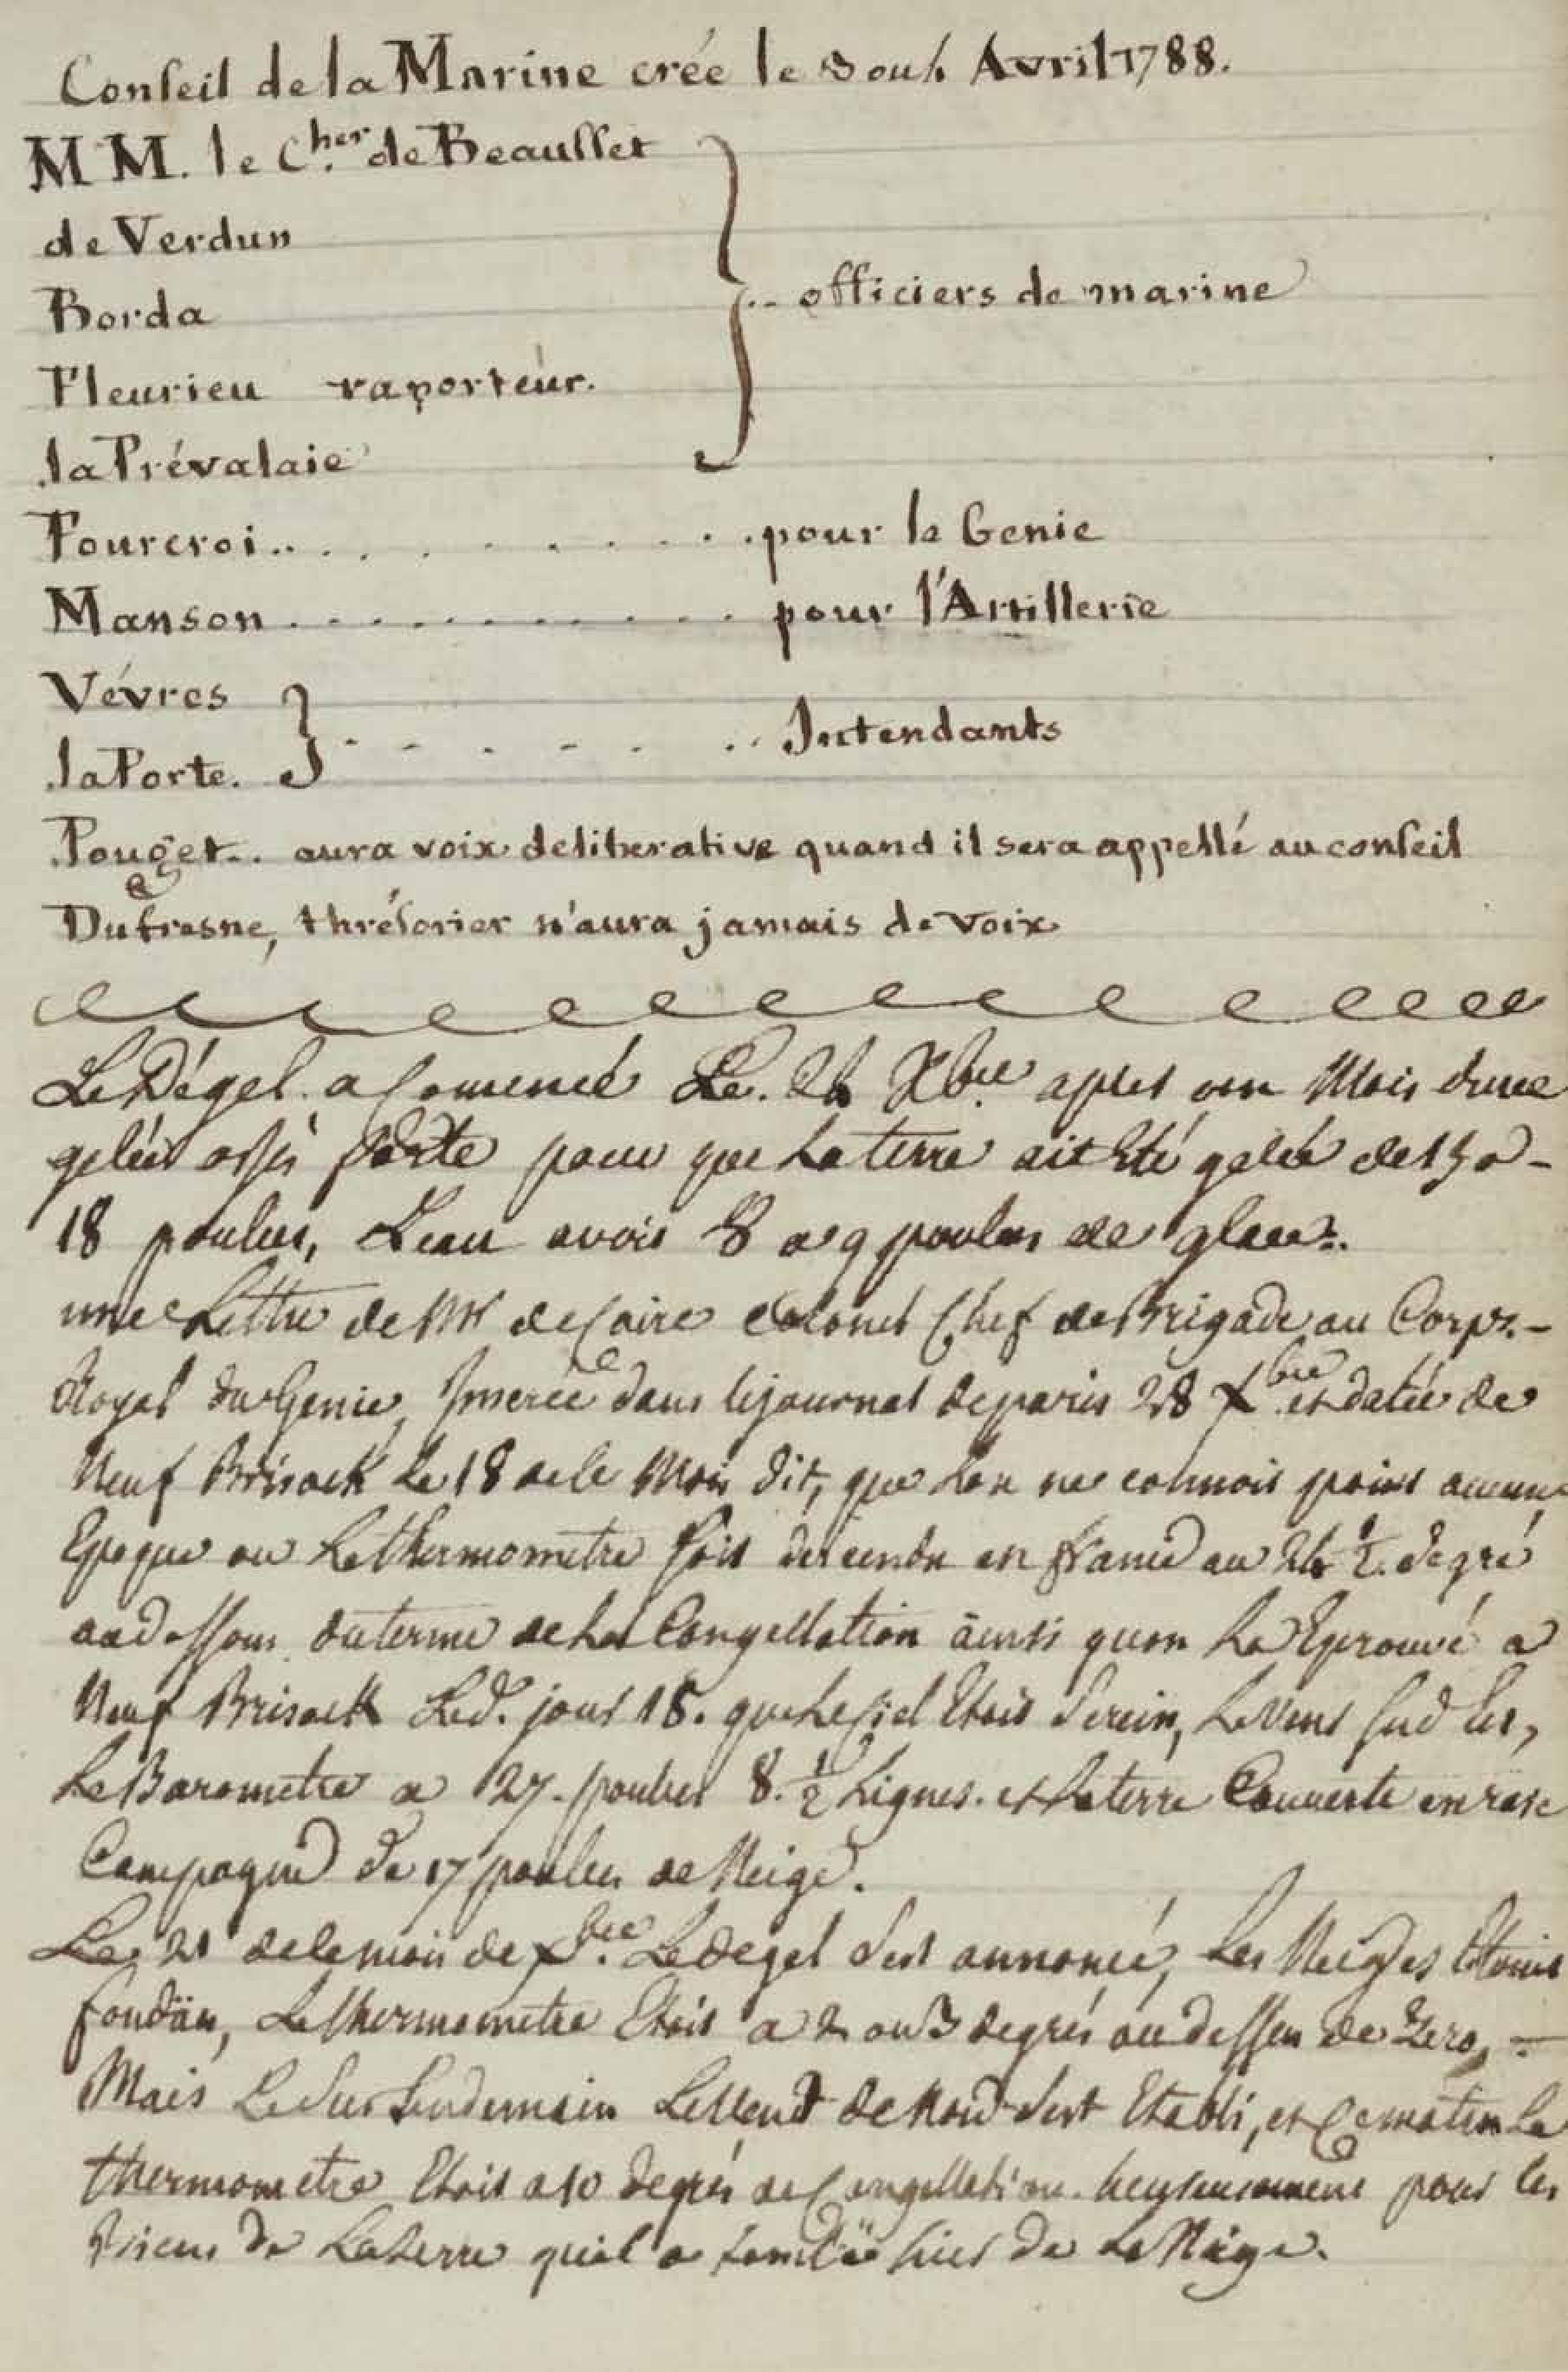 Conseil de la Marine crée le 3 ou 4 Avril 1788.
MM. le Cher. de Beausset
de Verdun
Borda
Fleurieu raporteur.
la Prévalaie
.. officiers de marine
Fourcroi .. . . . . . . . . . pour le Genie
Manson . . . . . . . . . . . pour l'Artillerie
Vévres
la Porte.
. . . . . . .. Intendants
Pouget .. aura voix deliberative quand il sera appellé au conseil
Dufresne, thrésorier n'aura jamais de voix
Le Dégel a Comencé Le. 24 Xbre apres un Mois dune
gelée assés forte pour que La terre ait Eté gelée de 15 a -
18 pouces, Leau avois 8 a 9 pouces de glace.
une Lettre de Mr de Caire Colonel Chef de Brigade au Corps. -
Royal du Genie, Inserée dans le journal de paris 28 Xbre et datée de
Neuf Brisack Le 18 de ce Mois dit, que Lon ne connois point aucune
Epoque ou Le thermometre soit descendu en france au 24 ½. degré
au dessous du terme de La Congellation äinsi quon La Eprouvé a
Neuf Brisack Led. jour 18. que Le Ciel Etois Serein, Le Vent Sud Est,
Le Barometre a 27. pouces 8. ½ Lignes. et La terre Couverte en rase
Campagne de 17 pouces de Neige.
Le 21 de ce mois de Xbre. Le degel S'est annoncé, Les Neiges Etoint
fondän, Le thermometre Etois a 2 ou 3 degrés au dessus de Zero, -
Mais Le Sur Lendemain Le Vent de Nord S'est Etabli, et Ce matin Le
thermometre Etoit a 10 degrés de Congellation. heureusement pour les
biens de La terre quil a tombée hier de La Neige.